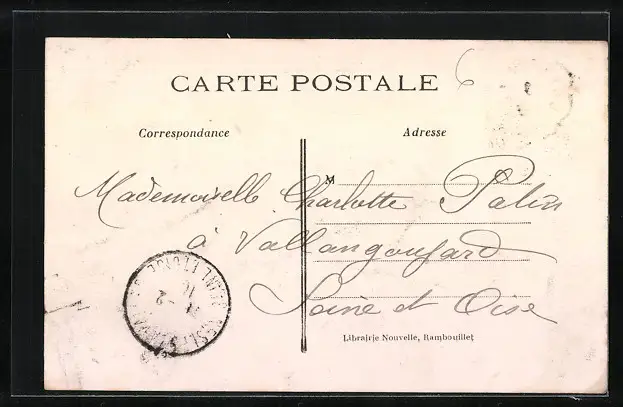 CARTE POSTALE
6
Correspondance
Adresse
M
Mademoiselle Charlotte Patin
à Vallangoujard
Seine et Oise
Librairie Nouvelle, Rambouillet